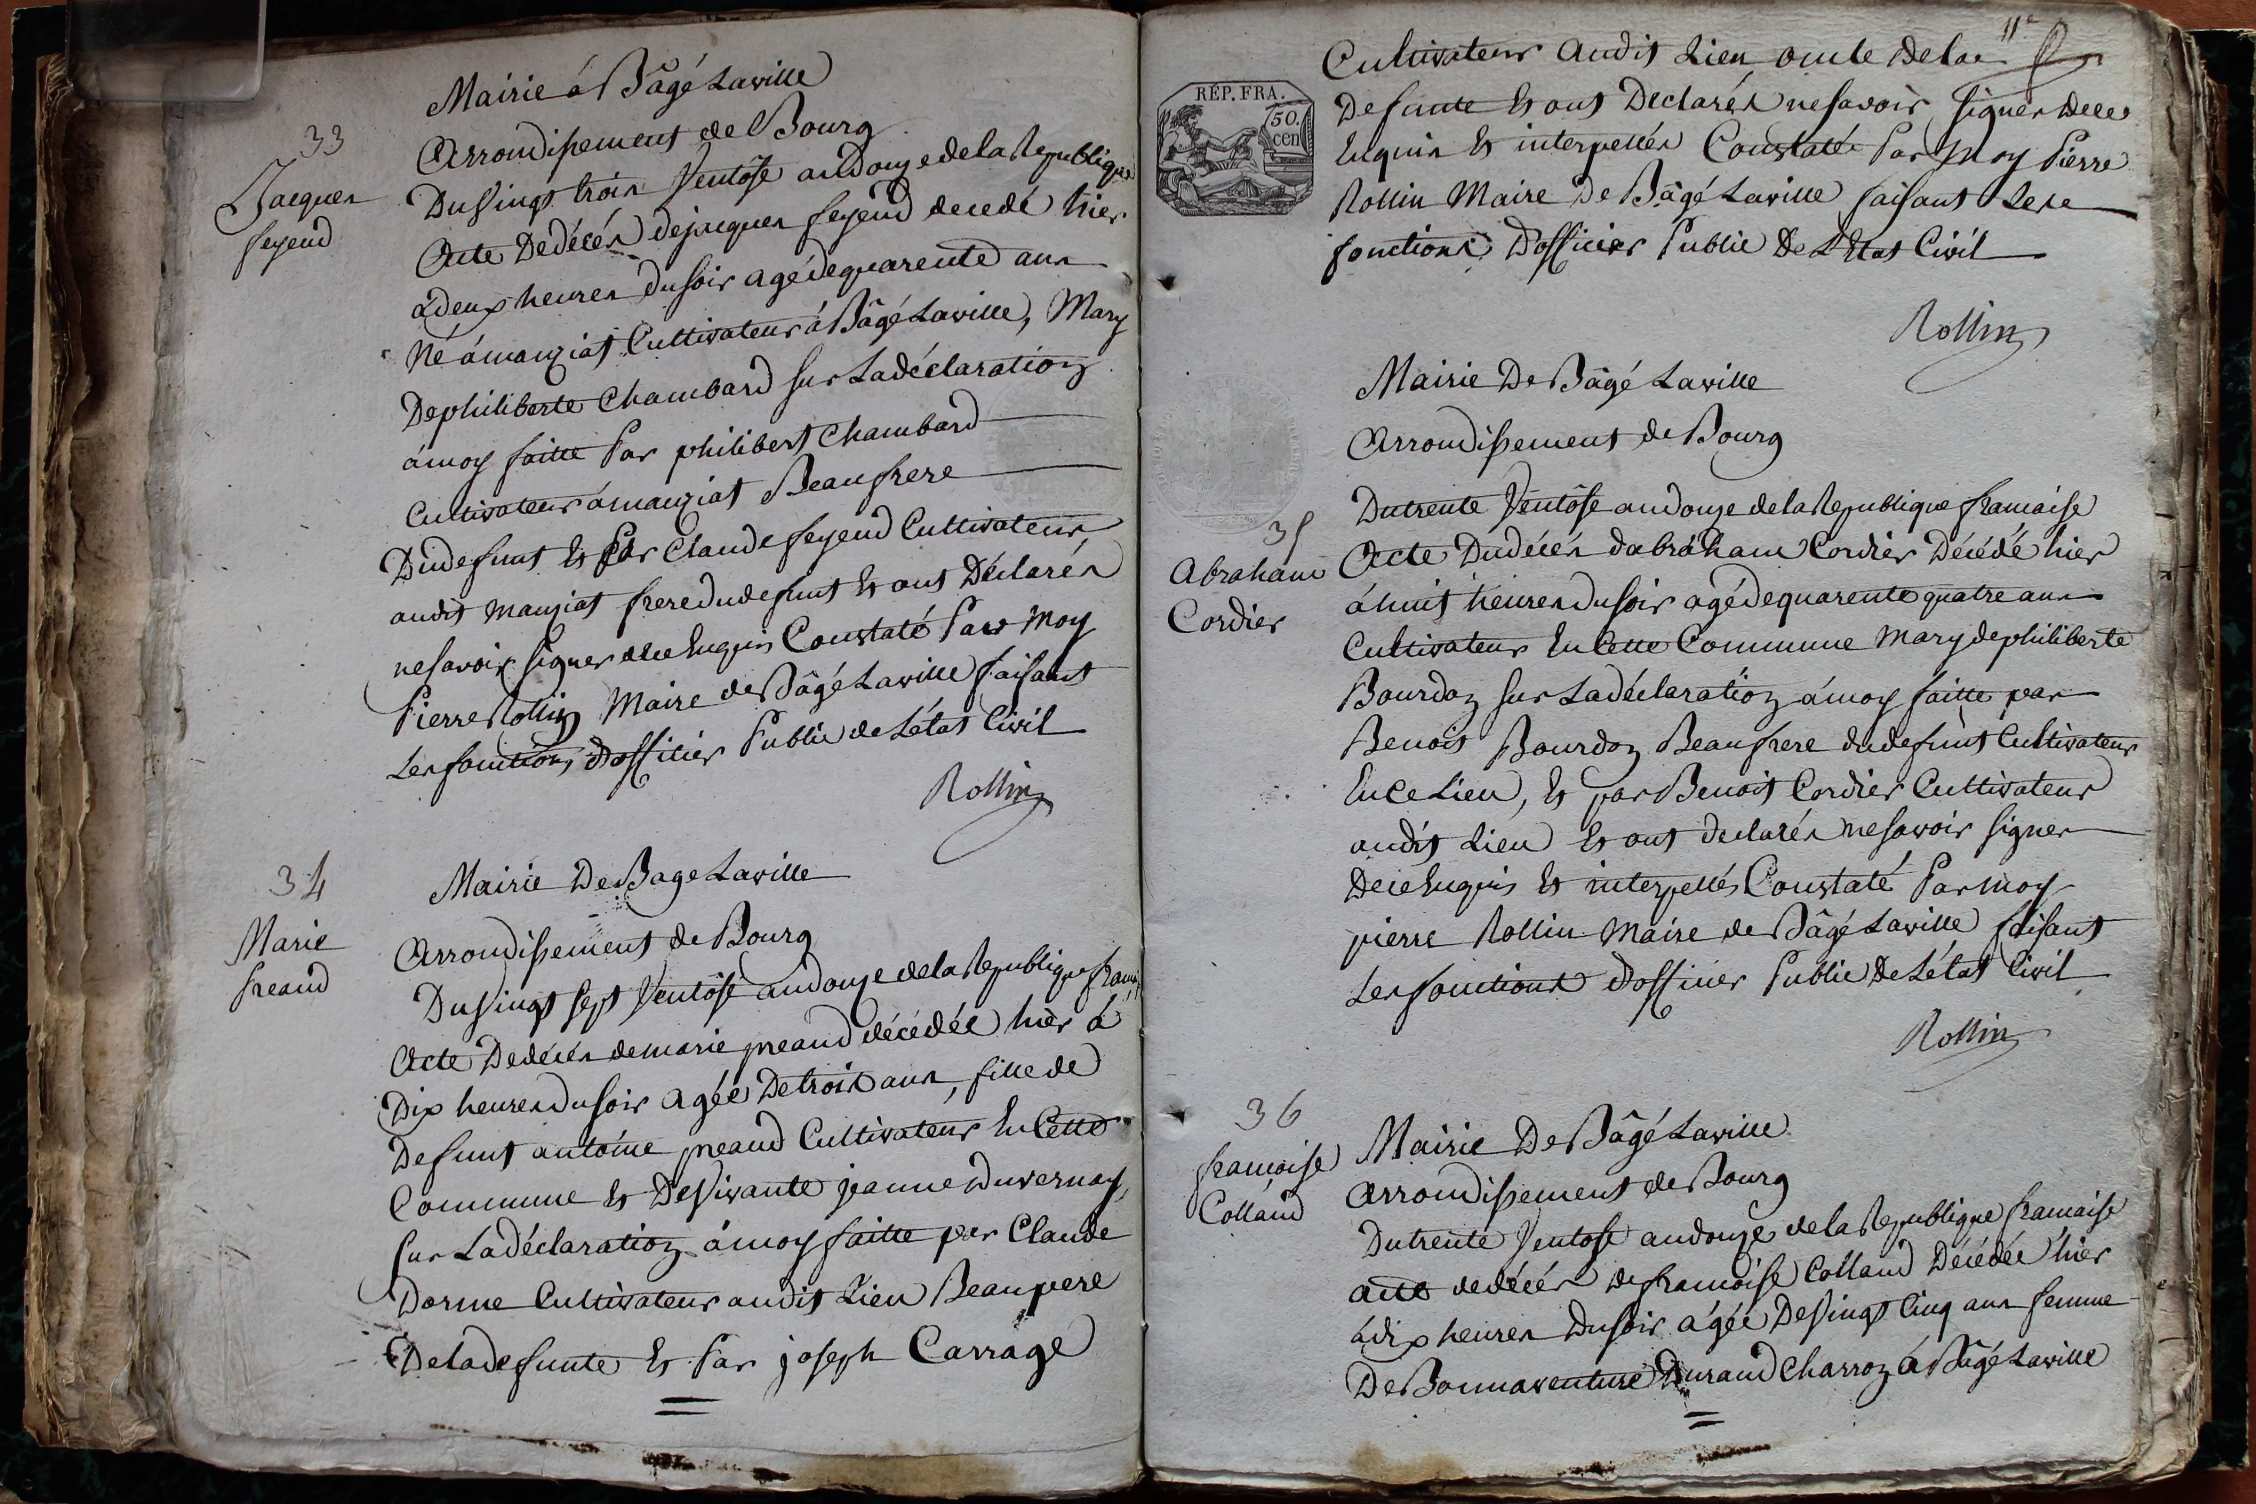 33
Jacques
feyend
Mairie á Bâgé Laville
Arrondissement de Bourg
Du Vingt trois Ventôse an Douze de la Republique
Acte De décés de jacques feyend decedé hier
á deux heures du soir agé de quarente ans
Né á manziat Cultivateur á Bâgé Laville, Mary
De philiberte Chambard sur La déclaration
á moy faitte Par philibert Chambard
Cultivateur á manziat Beaufrere
Du defunt Et Par Claude feyend Cultivateur
audit manziat frere du defunt Et ont Déclarés
ne savoir signer de ce Enquis Constaté Par moy
Pierre Rollin Maire de Bâgé Laville faisant
Les fonctions d'officier Public de L'état Civil
Rollin
34
Marie
preaud
Mairie De Bage Laville
Arrondissement de Bourg
Du Vingt sept Ventôse an douze de la Republique
Acte De décés de marie preaud décédée hier á
Dix heures du soir agée De trois ans, fille de
Defunt antoine preaud Cultivateur En Cette
Commune Et De Vivante jeanne Duvernay,
sur La déclaration á moy faitte par Claude
Dorme Cultivateur audit Lieu Beaupere
De la defunte Et Par joseph Carrage
11e
Cultivateur audit Lieu oncle De la
Defunte Et ont Declarés ne savoir signer De ce
Enquis Et interpellés Constaté Par Moy Pierre
Rollin Maire De Bâgé Laville faisant Les
fonctions D'officier Public De L'Etat Civil
Rollin
RÉP. FRA.
50.
cen
35
Abraham
Cordier
Mairie De Bâgé Laville
Arrondissement de Bourg
Du trente Ventôse an douze de la Republique francaise
Acte Du décés d'abraham Cordier Décédé hier
á huit heures du soir agé de quarente quatre ans
Cultivateur En Cette Commune Mary de philiberte
Bourdon sur La déclaration á moy faitte par
Benoit Bourdon Beaufrere du defunt Cultivateur
En Ce Lieu, Et par Benoit Cordier Cultivateur
audit Lieu Et ont declarés ne savoir signer
De ce Enquis Et interpellés Constaté Par moy
pierre Rollin Maire de Bâgé Laville faisant
Les fonctions d'officier Public De L'état Civil
Rollin
36
francoise
Colland
Mairie De Bâgé Laville
Arrondissement de Bourg
Du trente Ventose an douze de la Republique francaise
acte de décés de francoise Colland Décédée hier
á dix heures du soir agée De Vingt Cinq ans femme
De Bonnaventure Durand Charron á Bâgé Laville